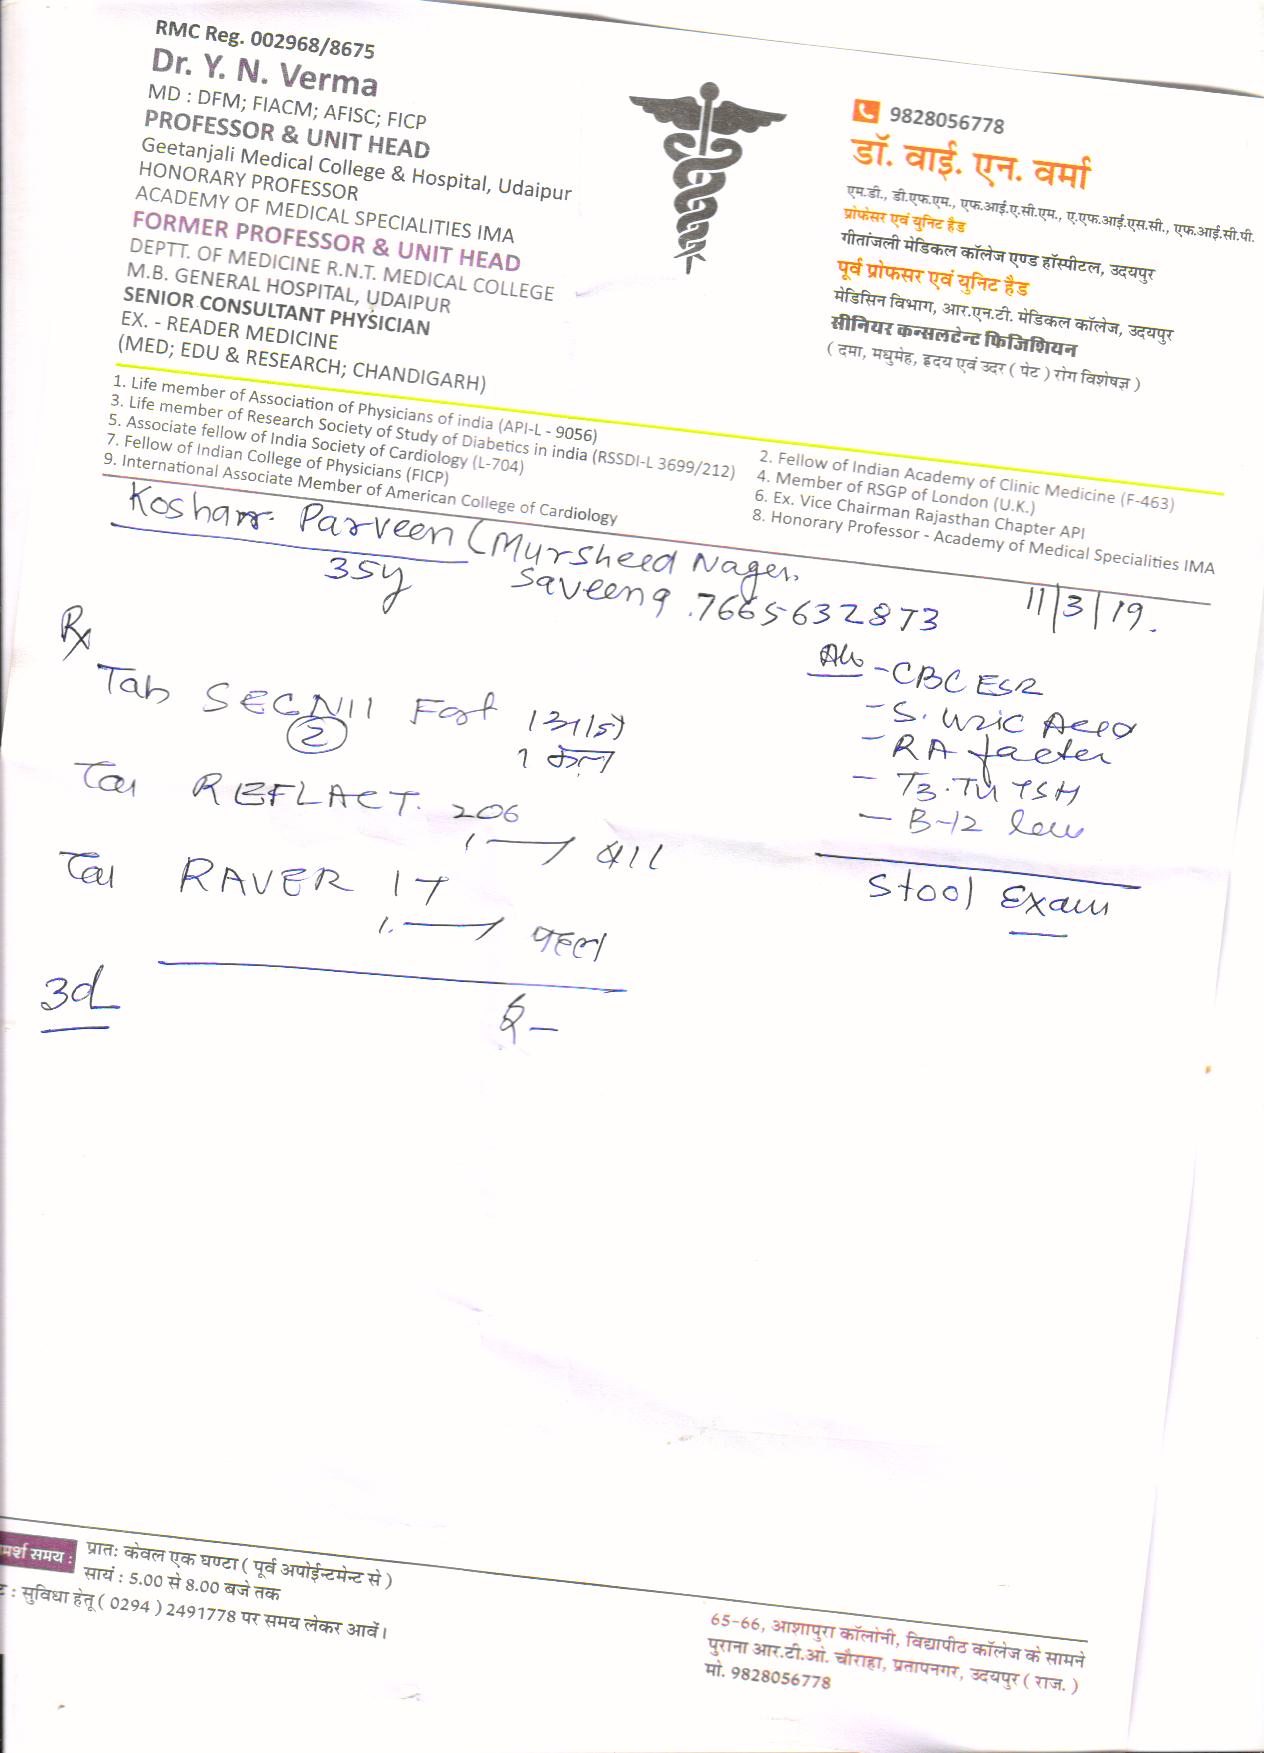 RMC Reg. 002968/8675
Dr. Y. N. Verma
MD : DFM; FIACM; AFISC; FICP
PROFESSOR & UNIT HEAD
Geetanjali Medical College & Hospital, Udaipur
HONORARY PROFESSOR
ACADEMY OF MEDICAL SPECIALITIES IMA
FORMER PROFESSOR & UNIT HEAD
DEPTT. OF MEDICINE R.N.T. MEDICAL COLLEGE
M.B. GENERAL HOSPITAL, UDAIPUR
SENIOR CONSULTANT PHYSICIAN
EX. - READER MEDICINE
(MED; EDU & RESEARCH; CHANDIGARH)
9828056778
डॉ. वाई. एन. वर्मा
एम.डी., डी.एफ.एम., एफ.आई.ए.सी.एम., ए.एफ.आई.एस.सी., एफ.आई.सी.पी.
प्रोफेसर एवं युनिट हैड
गीतांजली मेडिकल कॉलेज एण्ड हॉस्पीटल, उदयपुर
पूर्व प्रोफसर एवं युनिट हैड
मेडिसिन विभाग, आर.एन.टी. मेडिकल कॉलेज, उदयपुर
सीनियर कन्सलटेन्ट फिजिशियन
( दमा, मधुमेह, हृदय एवं उदर ( पेट ) रोग विशेषज्ञ )
1. Life member of Association of Physicians of india (API-L - 9056)
3. Life member of Research Society of Study of Diabetics in india (RSSDI-L 3699/212)
5. Associate fellow of India Society of Cardiology (L-704)
7. Fellow of Indian College of Physicians (FICP)
9. International Associate Member of American College of Cardiology
2. Fellow of Indian Academy of Clinic Medicine (F-463)
4. Member of RSGP of London (U.K.)
6. Ex. Vice Chairman Rajasthan Chapter API
8. Honorary Professor - Academy of Medical Specialities IMA
Parveen (Mursheed Nager.
35y Saveena .7665632873
11/3/19.
Rx
Tab SECNIL Fort 1 आज
2 1 कल
REFLACT. 200
1
RAVER IT
1. पहले
3d
- CBC ESR
- S. Uric Acid
- RA factor
- T3. T4 TSH
- B-12
Stool Exam
मर्श समय :
प्रातः केवल एक घण्टा ( पूर्व अपोईन्टमेन्ट से )
सायं : 5.00 से 8.00 बजे तक
ट : सुविधा हेतू ( 0294 ) 2491778 पर समय लेकर आवें।
65-66, आशापुरा कॉलोनी, विद्यापीठ कॉलेज के सामने
पुराना आर.टी.ओ. चौराहा, प्रतापनगर, उदयपुर ( राज. )
मो. 9828056778